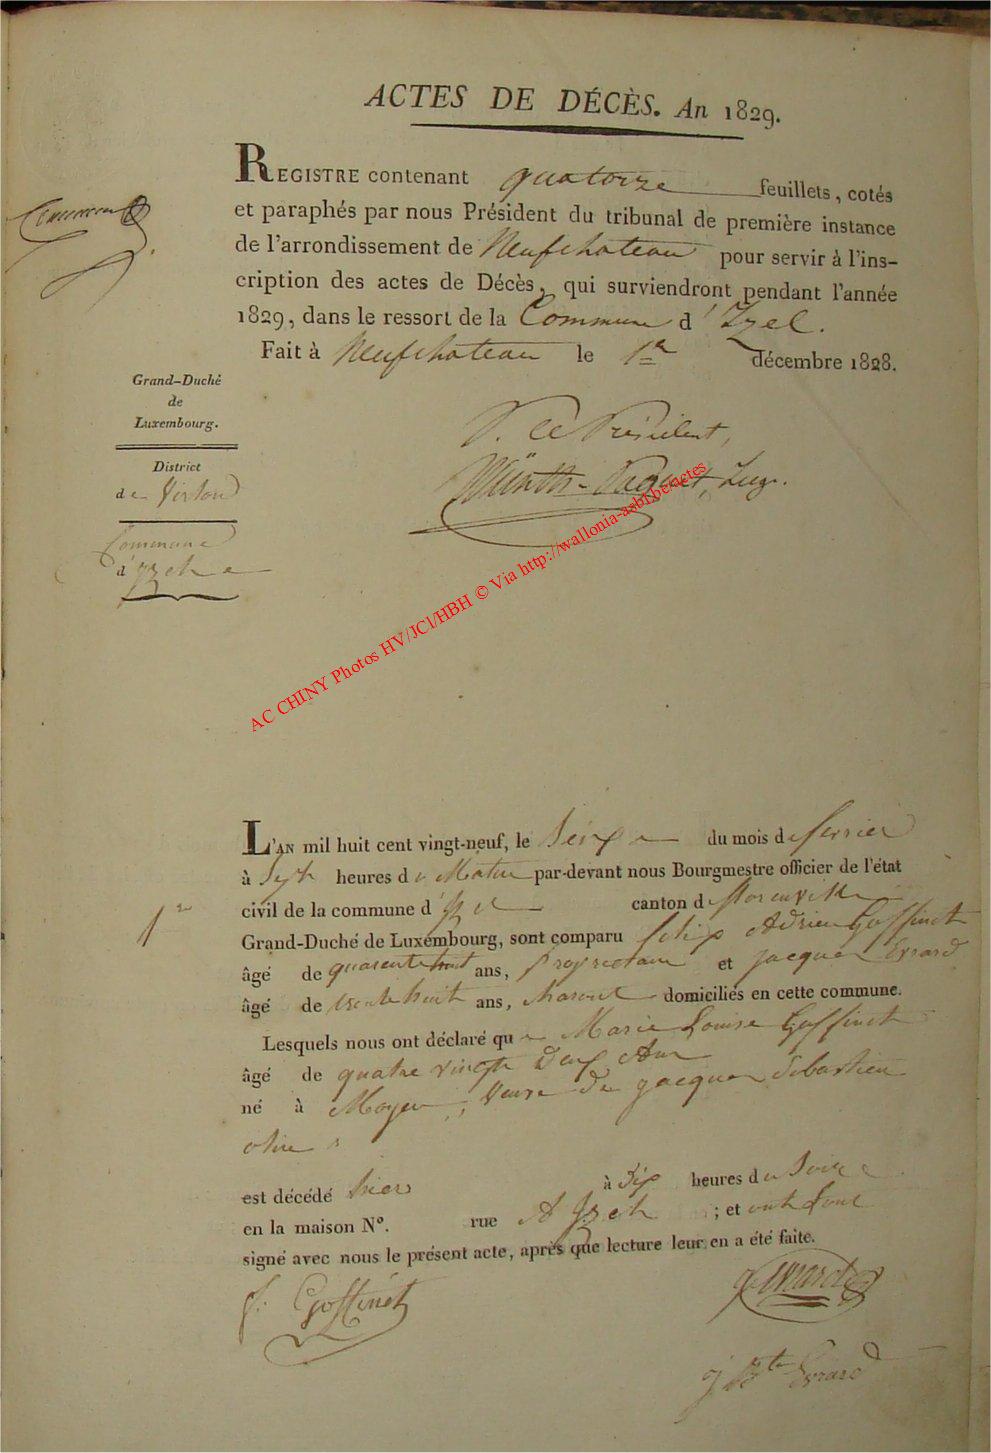 ACTES DE DÉCÈS. An 1829.
REGISTRE contenant quatorze feuillets, cotés
et paraphés par nous Président du tribunal de première instance
de l'arrondissement de Neufchateau pour servir à l'ins-
cription des actes de Décès, qui surviendront pendant l'année
1829, dans le ressort de la Commune d'Izel.
Fait à Neufchateau le 1er décembre 1828.
Grand-Duché
de
Luxembourg.
District
de Virton
Commune
d'Izel
P. le Président,
Juge.
AC CHINY Photos HV/JCl/HBH © Via http://wallonia-asbl.be/actes
L'AN mil huit cent vingt-neuf, le Seize du mois de fevrier
à Sept heures du Matin par-devant nous Bourgmestre officier de l'état
civil de la commune d'Izel canton de florenville
1er
Grand-Duché de Luxembourg, sont comparu Adrien Goffinet
âgé de quarente ans, proprietaire et jacques Evrard
âgé de trente huit ans, domiciliés en cette commune.
Lesquels nous ont déclaré que Marie Louise Goffinet
âgé de quatre vingt deux Ans
né à Moyen, veuve de jacques Sebastien
est décédé hier à dix heures du Soire
en la maison N°. rue A Izel ; et ont Tous
signé avec nous le présent acte, après que lecture leur en a été faite.
f. Goffinet
Evrard
j Bte Evrard